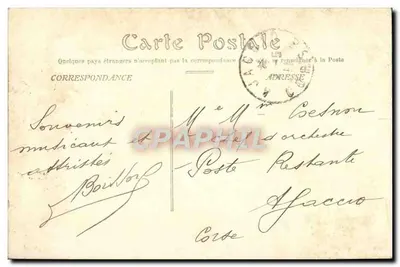 Carte Postale
Quelques pays étrangers n'acceptent pas la correspondance à la Poste
CORRESPONDANCE
ADRESSE
Souvenirs
musicaux et
attristés
M et Mme
Chef d'orchestre
Poste Restante
Ajaccio
Corse
CPAPHIL